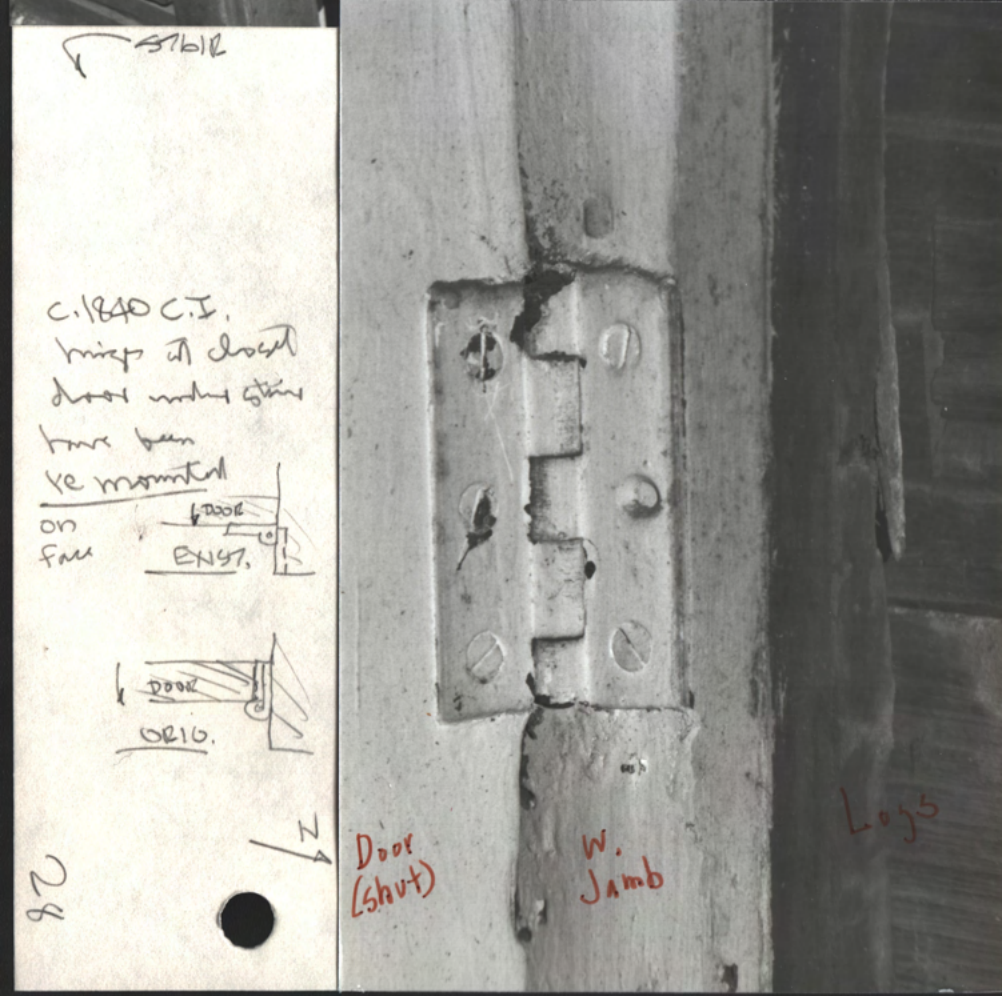 STAIR
C.1840 C.I.
hinges at closet
door under stair
have been
re mounted
on
face
DOOR
EXIST.
DOOR
ORIG.
N
28
Door
(shut)
W.
Jamb
Logs